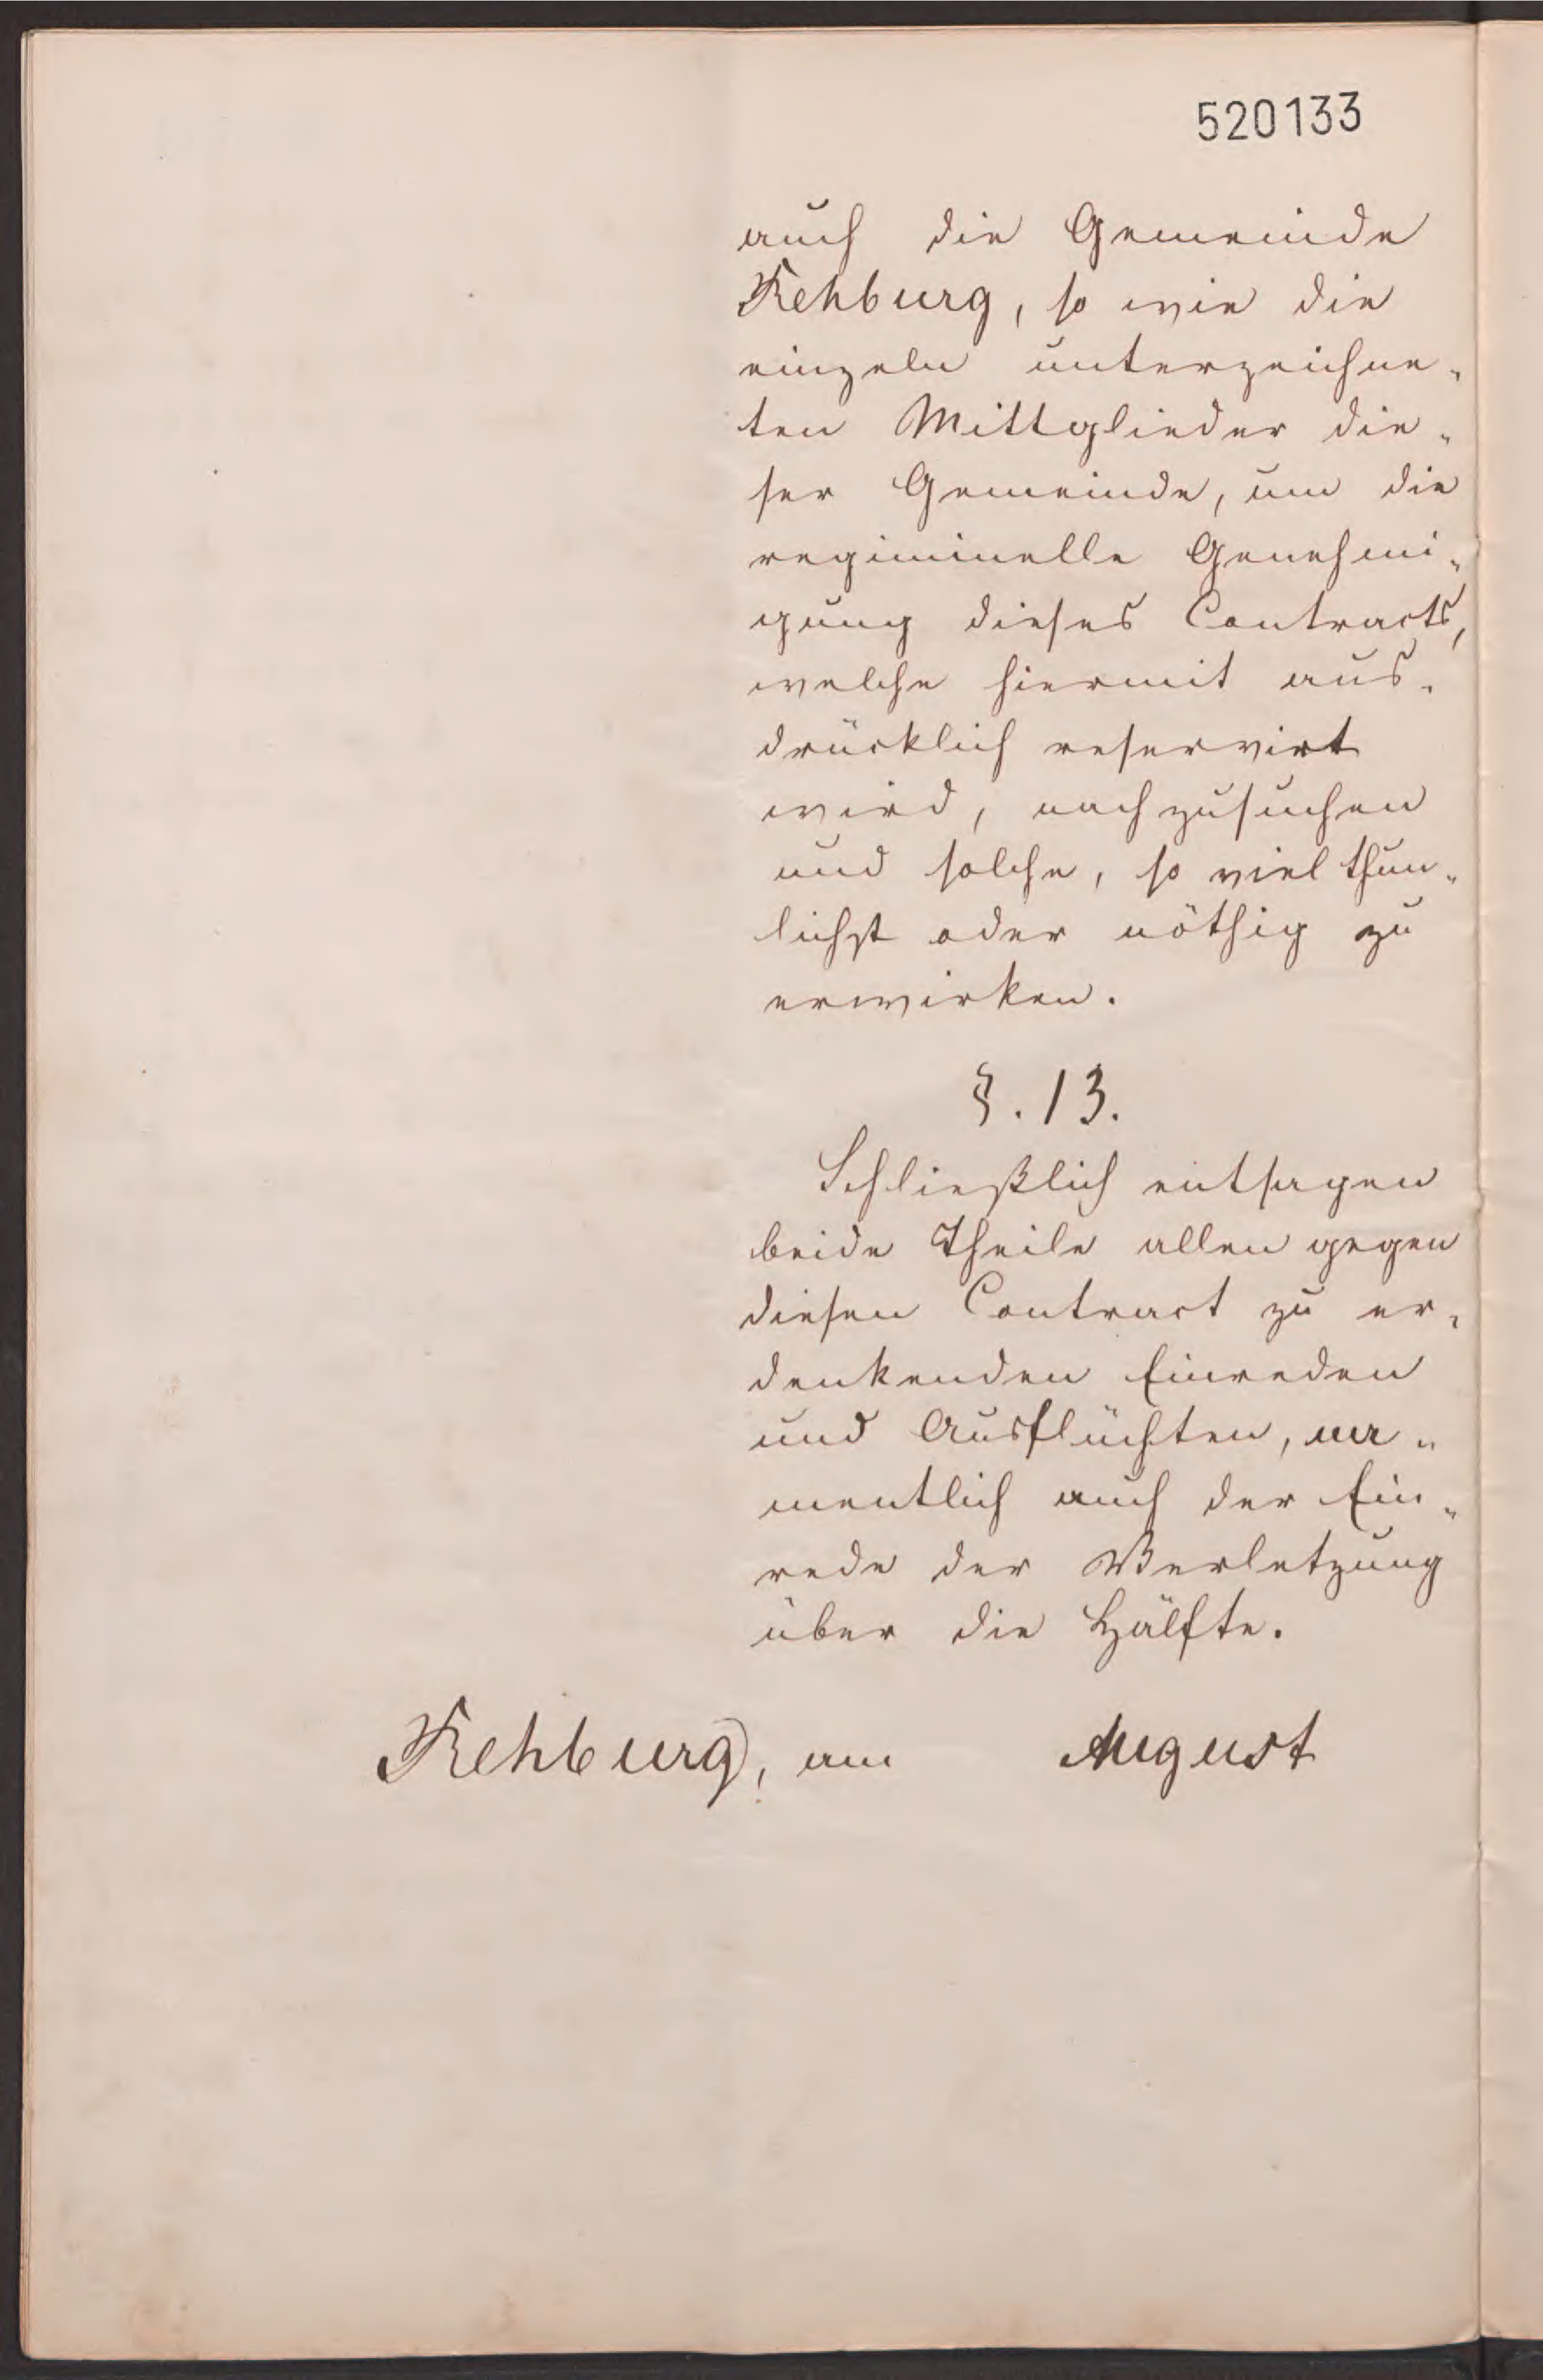 520133
auch die Gemeinde
Rehburg, so wie die
einzeln unterzeichne„
ten Mittglieder die„
ser Gemeinde, um die
regiminelle Genehmi„
gung dieses Contracts,
welche hiermit aus„
drücklich reservirt
wird, nachzusuchen
und solche, so viel thun„
lichst oder nöthig zu
erwirken.
§. 13.
Schließlich entsagen
beide Theile allen gegen
diesen Contract zu er„
denkenden Einreden
und Ausflüchten, na„
mentlich auch der Ein„
rede der Verletzung
über die Hälfte.
Rehburg, am August